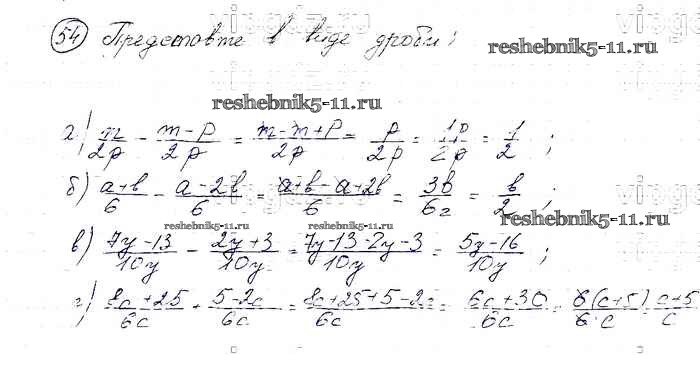 54 Представте в виде дроби:
reshebnik5-11.ru
reshebnik5-11.ru
а) m/2p - (m-p)/2p = (m-m+p)/2p = p/2p = 1p/2p = 1/2 ;
б) (a+b)/6 - (a-2b)/6 = (a+b-a+2b)/6 = 3b/6₂ = b/2 ;
reshebnik5-11.ru reshebnik5-11.ru
reshebnik5-11.ru
в) (7y-13)/10y - (2y+3)/10y = (7y-13-2y-3)/10y = (5y-16)/10y ;
г) (8c+25)/6c + (5-2c)/6c = (8c+25+5-2c)/6c = (6c+30)/6c = 6(c+5)/6c = (c+5)/c